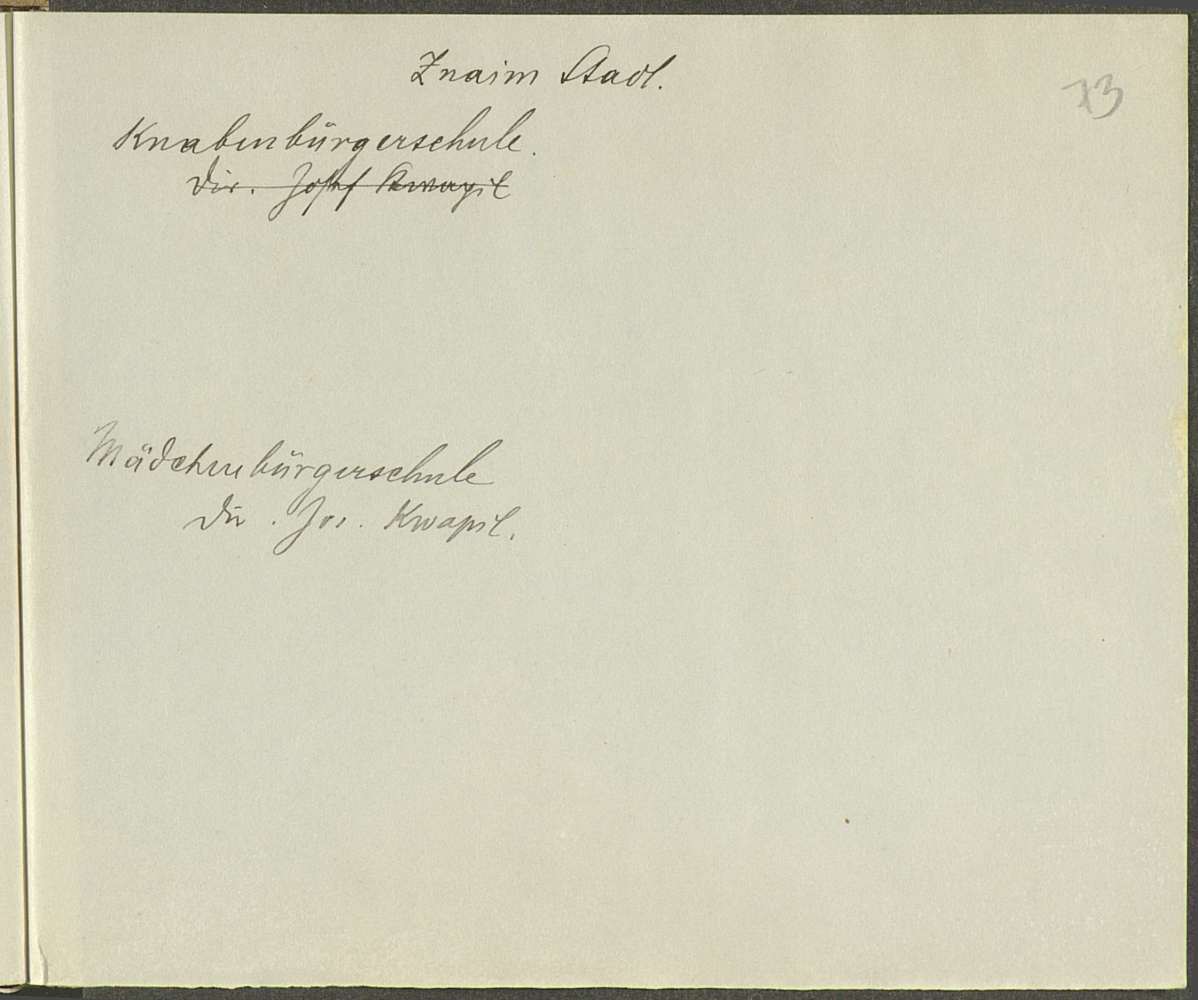 Znaim Stadt.
73
Knabenbürgerschule.
Dir. Josef Kwapil
Mädchenbürgerschule
Dir. Jos. Kwapil.